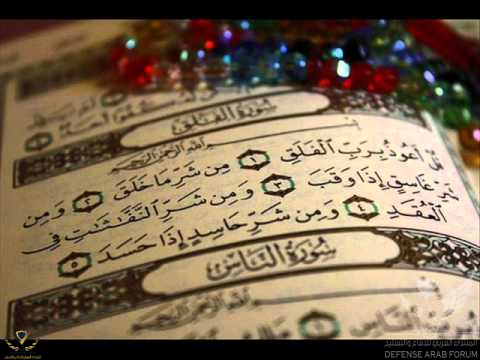 كُفُوًا أَحَدٌ ٤
سُورَةُ الفَلَقِ
بِسْمِ ٱللَّهِ ٱلرَّحْمَٰنِ ٱلرَّحِيمِ
قُلْ أَعُوذُ بِرَبِّ ٱلْفَلَقِ ١ مِن شَرِّ مَا خَلَقَ ٢ وَمِن
شَرِّ غَاسِقٍ إِذَا وَقَبَ ٣ وَمِن شَرِّ ٱلنَّفَّٰثَٰتِ فِي
ٱلْعُقَدِ ٤ وَمِن شَرِّ حَاسِدٍ إِذَا حَسَدَ ٥
سُورَةُ النَّاسِ
بِسْمِ ٱللَّهِ ٱلرَّحْمَٰنِ ٱلرَّحِيمِ
ٱلنَّاسِ ١
المنتدى العربي للدفاع والتسليح
DEFENSE ARAB FORUM